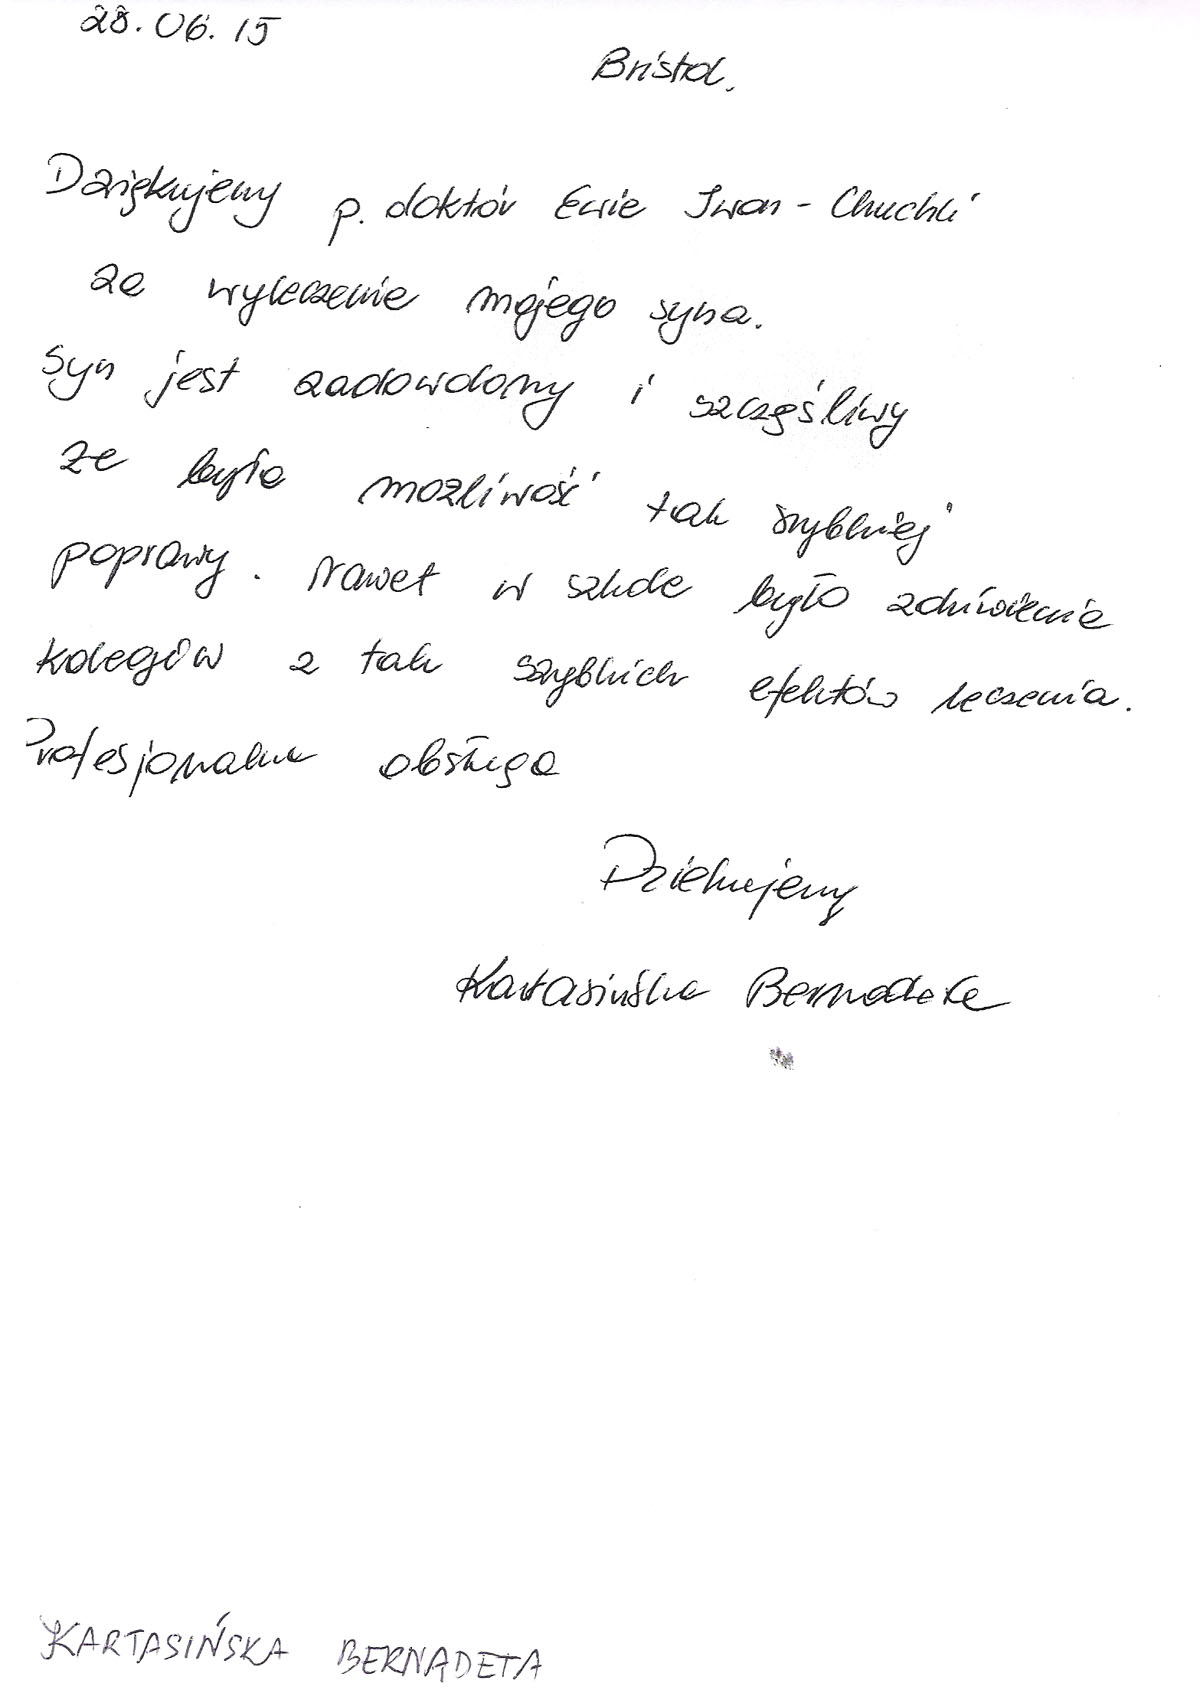 28.06.15
Bristol.
Dziękujemy p. doktór Ewie Iwan-Chuchli
za wyleczenie mojego syna.
Syn jest zadowolony i szczęśliwy
że była możliwość tak szybkiej
poprawy. Nawet w szkole było zdziwienie
kolegów z tak szybkich efektów leczenia.
Profesjonalna obsługa
Dziekujemy
Kartasińska Bernadeta
KARTASIŃSKA BERNADETA